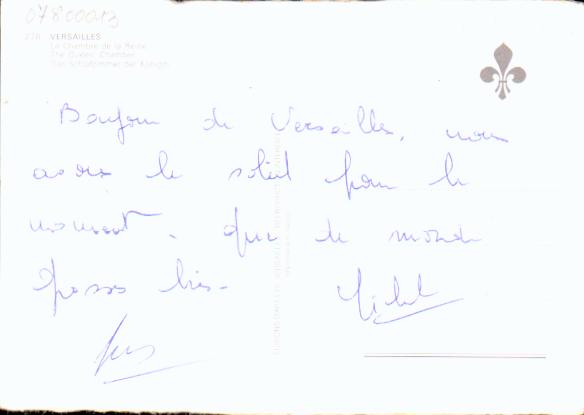 07800013
278 VERSAILLES
La Chambre de la Reine
The Queen' Chamber
Das Schlafzimmer der Königin
Bonjour de Versailles, nous
avons le soleil pour le
moment. que de monde
Grosses bises
Michel